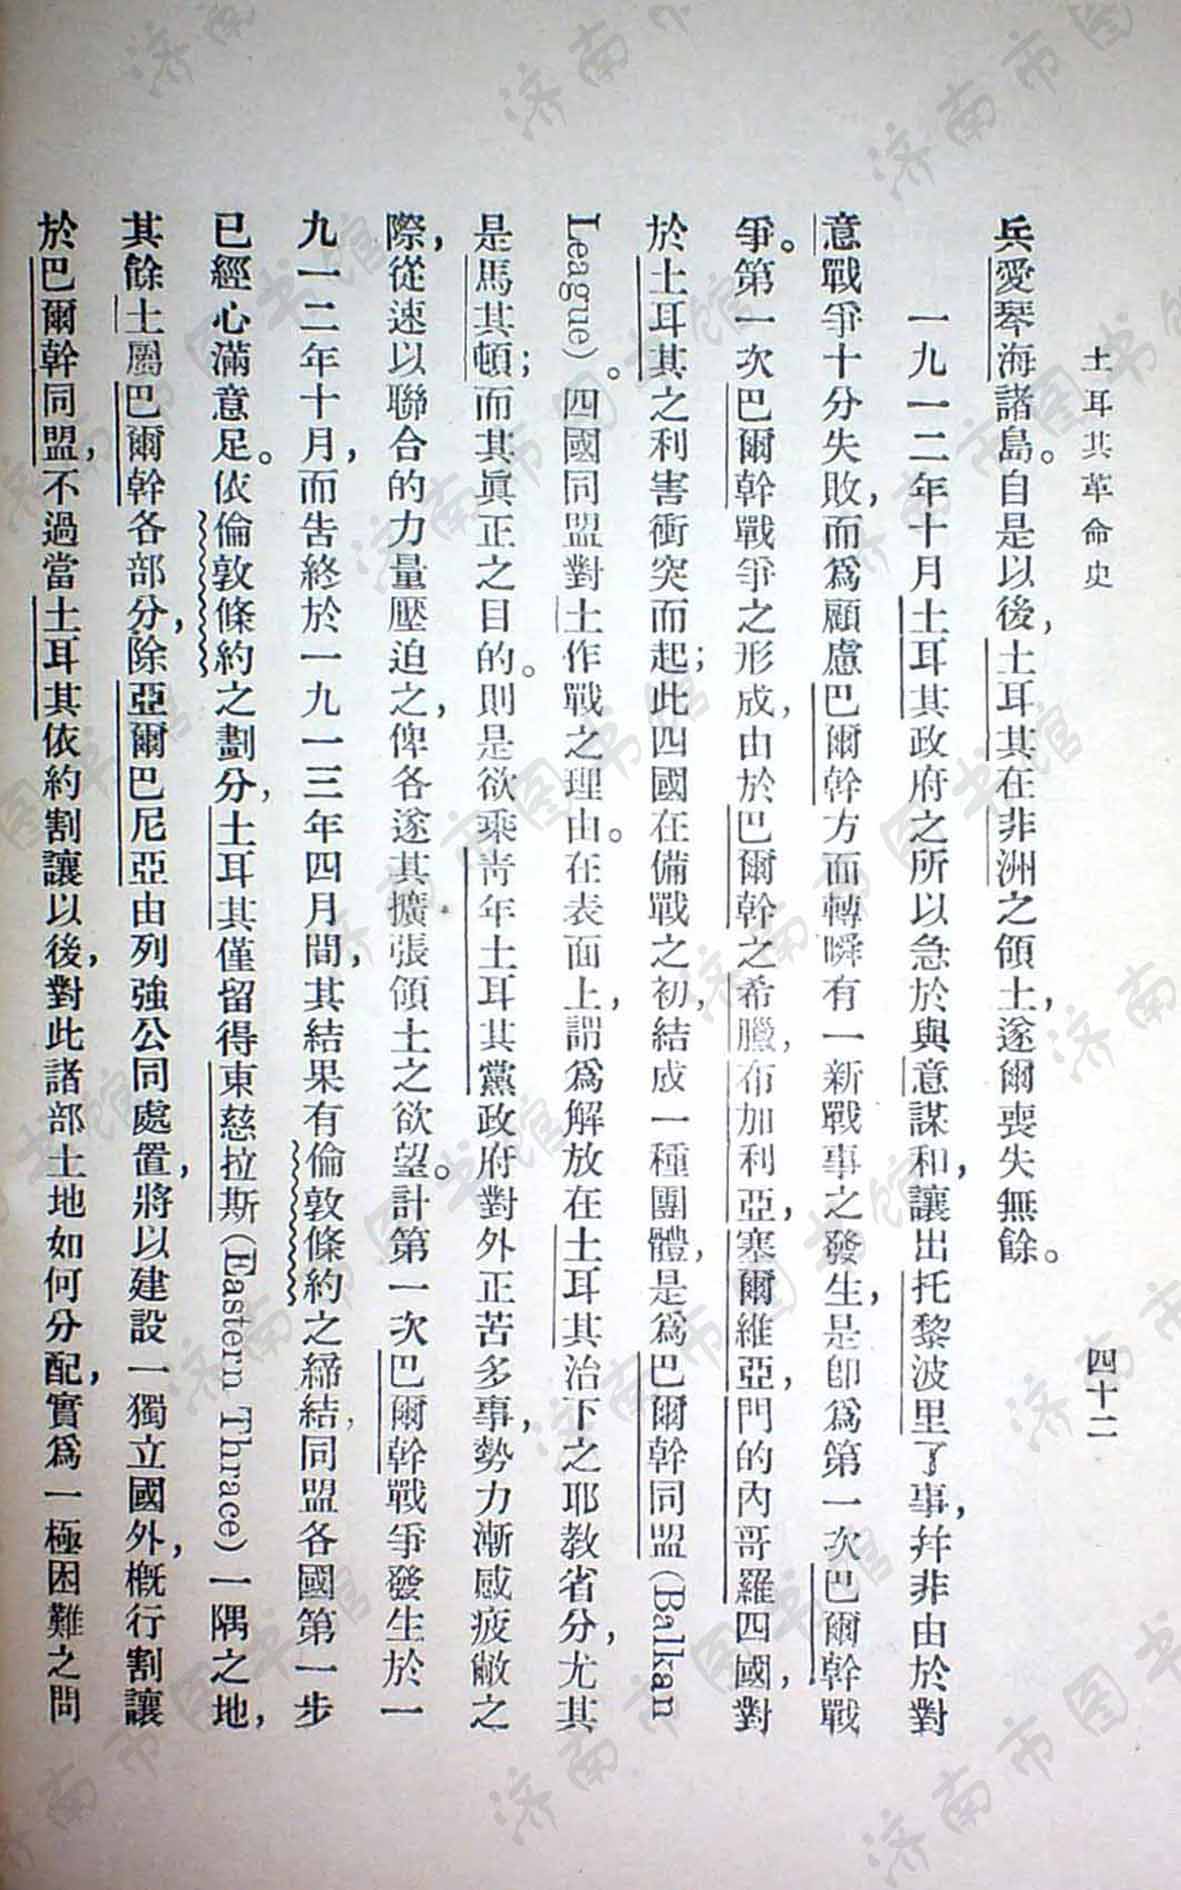 土耳其革命史
四十二
兵愛琴海諸島。自是以後，土耳其在非洲之領土，遂爾喪失無餘。
一九一二年十月土耳其政府之所以急於與意謀和，讓出托黎波里了事，幷非由於對
意戰爭十分失敗，而爲顧慮巴爾幹方面轉瞬有一新戰事之發生，是卽爲第一次巴爾幹戰
爭。第一次巴爾幹戰爭之形成，由於巴爾幹之希臘，布加利亞，塞爾維亞，門的內哥羅四國，對
於土耳其之利害衝突而起；此四國在備戰之初，結成一種團體，是爲巴爾幹同盟（Balkan
League）。四國同盟對土作戰之理由。在表面上，謂爲解放在土耳其治下之耶教省分，尤其
是馬其頓；而其眞正之目的。則是欲乘靑年土耳其黨政府對外正苦多事，勢力漸感疲敝之
際，從速以聯合的力量壓迫之，俾各遂其擴張領土之欲望。計第一次巴爾幹戰爭發生於一
九一二年十月，而吿終於一九一三年四月間，其結果有倫敦條約之締結，同盟各國第一步
已經心滿意足。依倫敦條約之劃分，土耳其僅留得東慈拉斯（Eastern Thrace）一隅之地，
其餘土屬巴爾幹各部分，除亞爾巴尼亞由列強公同處置，將以建設一獨立國外，槪行割讓
於巴爾幹同盟，不過當土耳其依約割讓以後，對此諸部土地如何分配，實爲一極困難之問
济南市图书馆